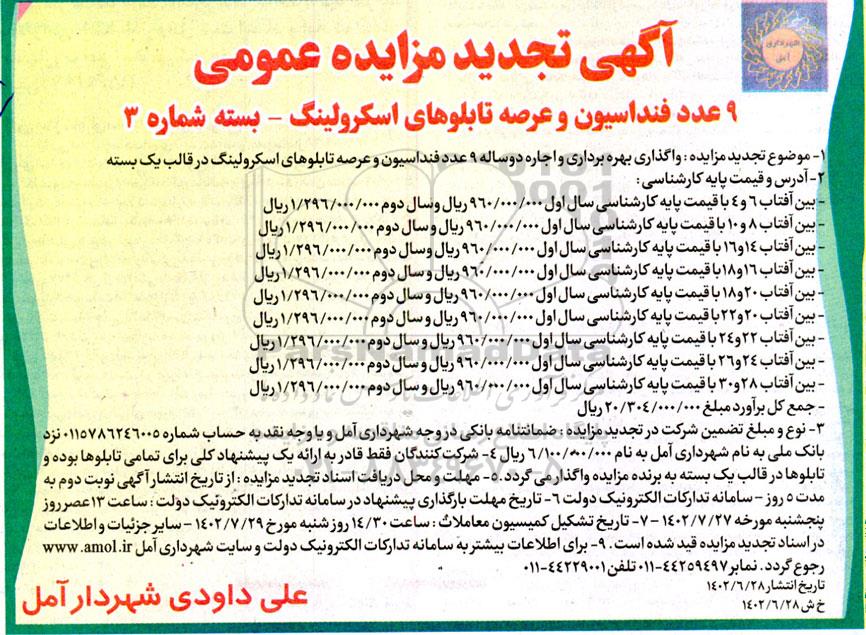 شهرداری
آمل
آگهی تجدید مزایده عمومی
۹ عدد فنداسیون و عرصه تابلوهای اسکرولینگ - بسته شماره ۳
۱- موضوع تجدید مزایده : واگذاری بهره برداری و اجاره دوساله ۹ عدد فنداسیون و عرصه تابلوهای اسکرولینگ در قالب یک بسته
۲- آدرس و قیمت پایه کارشناسی :
- بین آفتاب ۶ و ۴ با قیمت پایه کارشناسی سال اول ۹۶۰/۰۰۰/۰۰۰ ریال و سال دوم ۱/۲۹۶/۰۰۰/۰۰۰ ریال
- بین آفتاب ۸ و ۱۰ با قیمت پایه کارشناسی سال اول ۹۶۰/۰۰۰/۰۰۰ ریال و سال دوم ۱/۲۹۶/۰۰۰/۰۰۰ ریال
- بین آفتاب ۱۴ و ۱۶ با قیمت پایه کارشناسی سال اول ۹۶۰/۰۰۰/۰۰۰ ریال و سال دوم ۱/۲۹۶/۰۰۰/۰۰۰ ریال
- بین آفتاب ۱۶ و ۱۸ با قیمت پایه کارشناسی سال اول ۹۶۰/۰۰۰/۰۰۰ ریال و سال دوم ۱/۲۹۶/۰۰۰/۰۰۰ ریال
- بین آفتاب ۲۰ و ۱۸ با قیمت پایه کارشناسی سال اول ۹۶۰/۰۰۰/۰۰۰ ریال و سال دوم ۱/۲۹۶/۰۰۰/۰۰۰ ریال
- بین آفتاب ۲۰ و ۲۲ با قیمت پایه کارشناسی سال اول ۹۶۰/۰۰۰/۰۰۰ ریال و سال دوم ۱/۲۹۶/۰۰۰/۰۰۰ ریال
- بین آفتاب ۲۲ و ۲۴ با قیمت پایه کارشناسی سال اول ۹۶۰/۰۰۰/۰۰۰ ریال و سال دوم ۱/۲۹۶/۰۰۰/۰۰۰ ریال
- بین آفتاب ۲۴ و ۲۶ با قیمت پایه کارشناسی سال اول ۹۶۰/۰۰۰/۰۰۰ ریال و سال دوم ۱/۲۹۶/۰۰۰/۰۰۰ ریال
- بین آفتاب ۲۸ و ۳۰ با قیمت پایه کارشناسی سال اول ۹۶۰/۰۰۰/۰۰۰ ریال و سال دوم ۱/۲۹۶/۰۰۰/۰۰۰ ریال
- جمع کل برآورد مبلغ ۲۰/۳۰۴/۰۰۰/۰۰۰ ریال
۳- نوع و مبلغ تضمین شرکت در تجدید مزایده : ضمانتنامه بانکی در وجه شهرداری آمل و یا وجه نقد به حساب شماره ۰۱۱۵۷۸۶۲۴۶۰۰۵ نزد
بانک ملی به نام شهرداری آمل به نام ۶/۱۰۰/۰۰۰/۰۰۰ ریال ۴- شرکت کنندگان فقط قادر به ارائه یک پیشنهاد کلی برای تمامی تابلوها بوده و
تابلوها در قالب یک بسته به برنده مزایده واگذار می گردد. ۵- مهلت و محل دریافت اسناد تجدید مزایده : از تاریخ انتشار آگهی نوبت دوم به
مدت ۵ روز - سامانه تدارکات الکترونیک دولت ۶- تاریخ مهلت بارگذاری پیشنهاد در سامانه تدارکات الکترونیک دولت : ساعت ۱۳ عصر روز
پنجشنبه مورخه ۱۴۰۲/۷/۲۷ ۷- تاریخ تشکیل کمیسیون معاملات : ساعت ۱۴/۳۰ روز شنبه مورخ ۱۴۰۲/۷/۲۹ ۸- سایر جزئیات و اطلاعات
در اسناد تجدید مزایده قید شده است. ۹- برای اطلاعات بیشتر به سامانه تدارکات الکترونیک دولت و سایت شهرداری آمل www.amol.ir
رجوع گردد. نمابر ۴۴۲۵۹۴۹۷-۰۱۱ تلفن ۴۴۲۲۹۰۰۱-۰۱۱
تاریخ انتشار ۱۴۰۲/۶/۲۸
خ ش ۱۴۰۲/۶/۲۸
علی داودی شهردار آمل
ParsNamadData